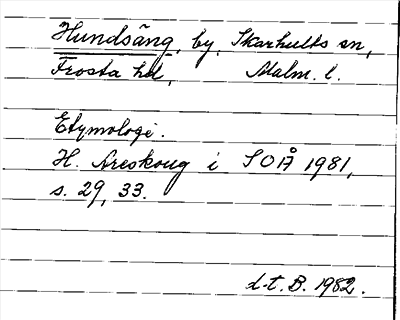 Hundsäng, by, Skarhults sn,
Frosta hd, Malm. l.
Etymologi.
H. Areskoug i SOÅ 1981,
s. 29, 33.
d.t. B. 1982.